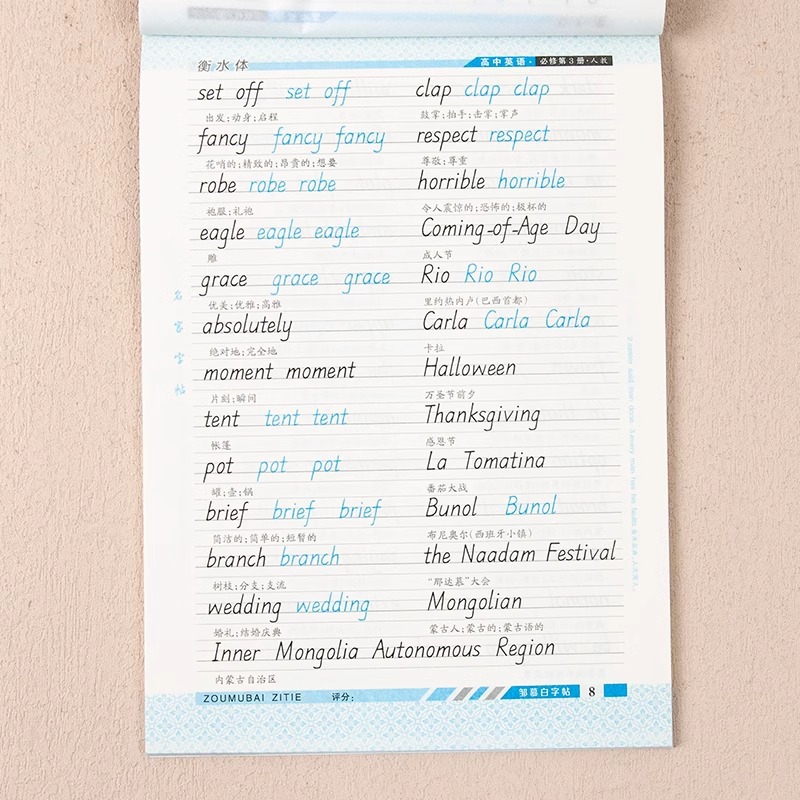 衡水体
高中英语·必修第3册·人教
set off set off clap clap clap
出发;动身;启程 鼓掌;拍手;击掌;掌声
fancy fancy fancy respect respect
花哨的;精致的;昂贵的;想要 尊敬;尊重
robe robe robe horrible horrible
袍服;礼袍 令人震惊的;恐怖的;极坏的
eagle eagle eagle Coming-of-Age Day
雕 成人节
grace grace grace Rio Rio Rio
优美;优雅;高雅 里约热内卢(巴西首都)
absolutely Carla Carla Carla
绝对地;完全地 卡拉
moment moment Halloween
片刻;瞬间 万圣节前夕
tent tent tent Thanksgiving
帐篷 感恩节
pot pot pot La Tomatina
罐;壶;锅 番茄大战
brief brief brief Bunol Bunol
简洁的;简单的;短暂的 布尼奥尔(西班牙小镇)
branch branch the Naadam Festival
树枝;分支;支流 “那达慕”大会
wedding wedding Mongolian
婚礼;结婚庆典 蒙古人;蒙古的;蒙古语的
Inner Mongolia Autonomous Region
内蒙古自治区
名家字帖
ZOUMUBAI ZITIE 评分:
邹慕白字帖 8